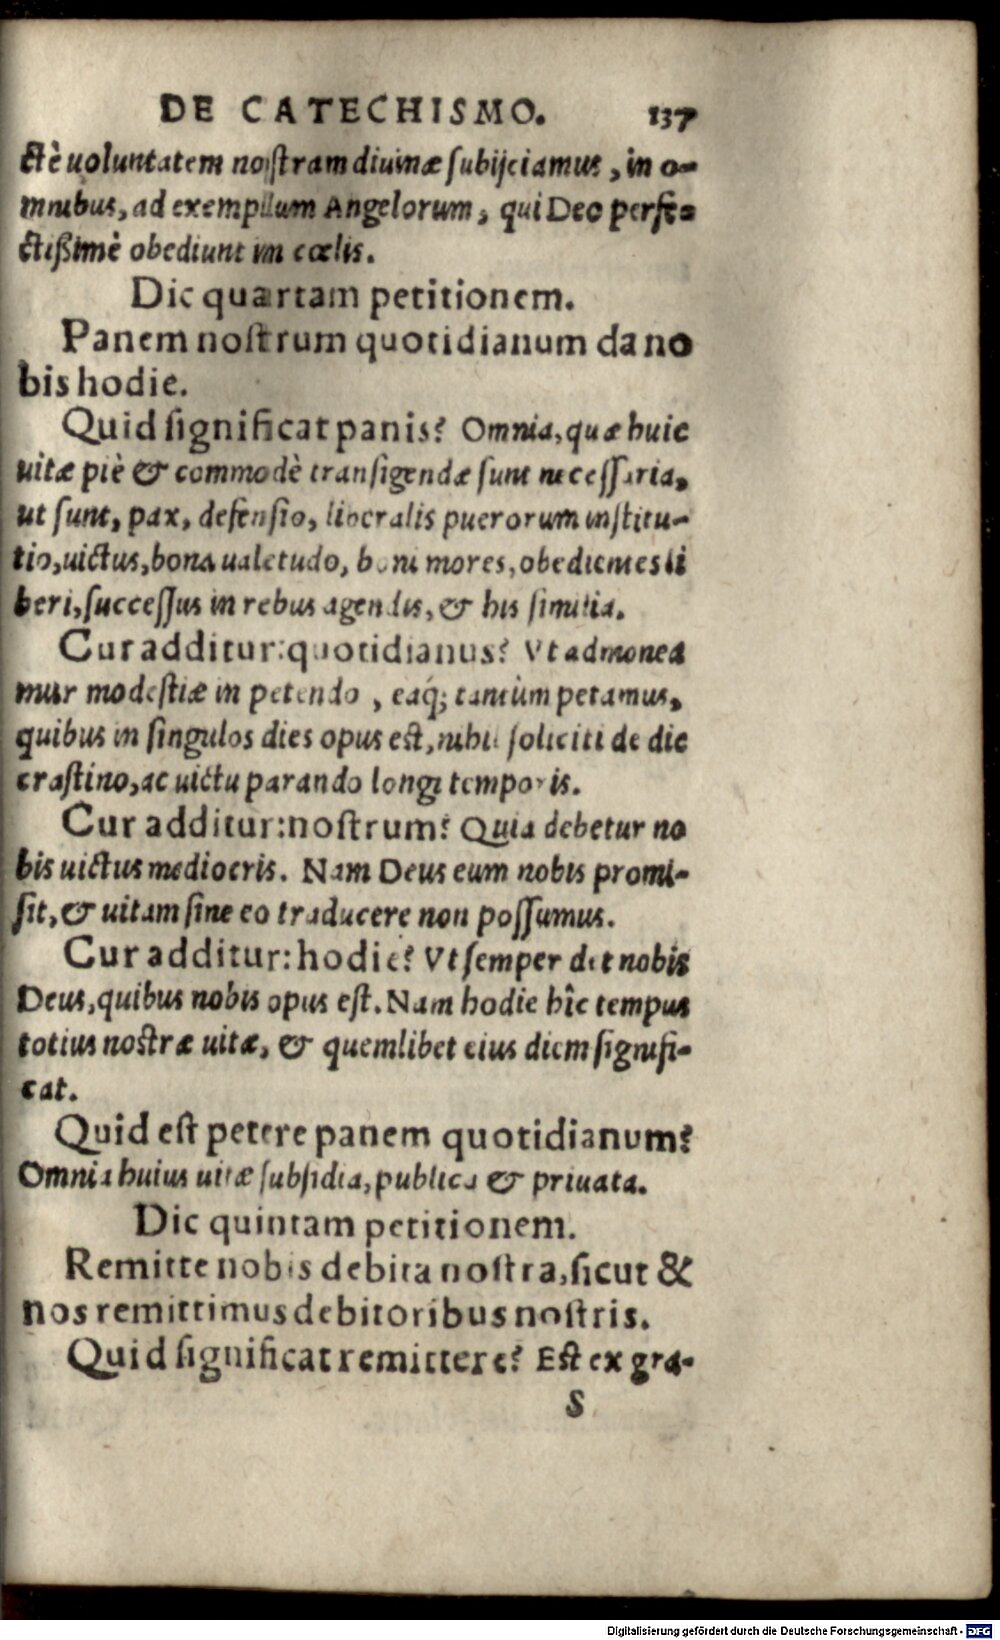 DE CATECHISMO. 137
ctè uoluntatem nostram diuinæ subijciamus, in o-
mnibus, ad exemplum Angelorum, qui Deo perfe-
ctißimè obediunt in cœlis.
Dic quartam petitionem.
Panem nostrum quotidianum da no
bis hodie.
Quid significat panis? Omnia, quæ huic
uitæ piè & commodè transigendæ sunt necessaria,
ut sunt, pax, defensio, liberalis puerorum institu-
tio, uictus, bona ualetudo, boni mores, obedientes li
beri, successus in rebus agendis, & his similia.
Cur additur: quotidianus? Vt admonea
mur modestiæ in petendo, eaq; tantùm petamus,
quibus in singulos dies opus est, nihil soliciti de die
crastino, ac uictu parando longi temporis.
Cur additur: nostrum? Quia debetur no
bis uictus mediocris. Nam Deus eum nobis promi-
sit, & uitam sine eo traducere non possumus.
Cur additur: hodie? Vt semper det nobis
Deus, quibus nobis opus est. Nam hodie hîc tempus
totius nostræ uitæ, & quemlibet eius diem signifi-
cat.
Quid est petere panem quotidianum?
Omnia huius uitæ subsidia, publica & priuata.
Dic quintam petitionem.
Remitte nobis debita nostra, sicut &
nos remittimus debitoribus nostris.
Quid significat remittere? Est ex gra-
S
Digitalisierung gefördert durch die Deutsche Forschungsgemeinschaft - DFG